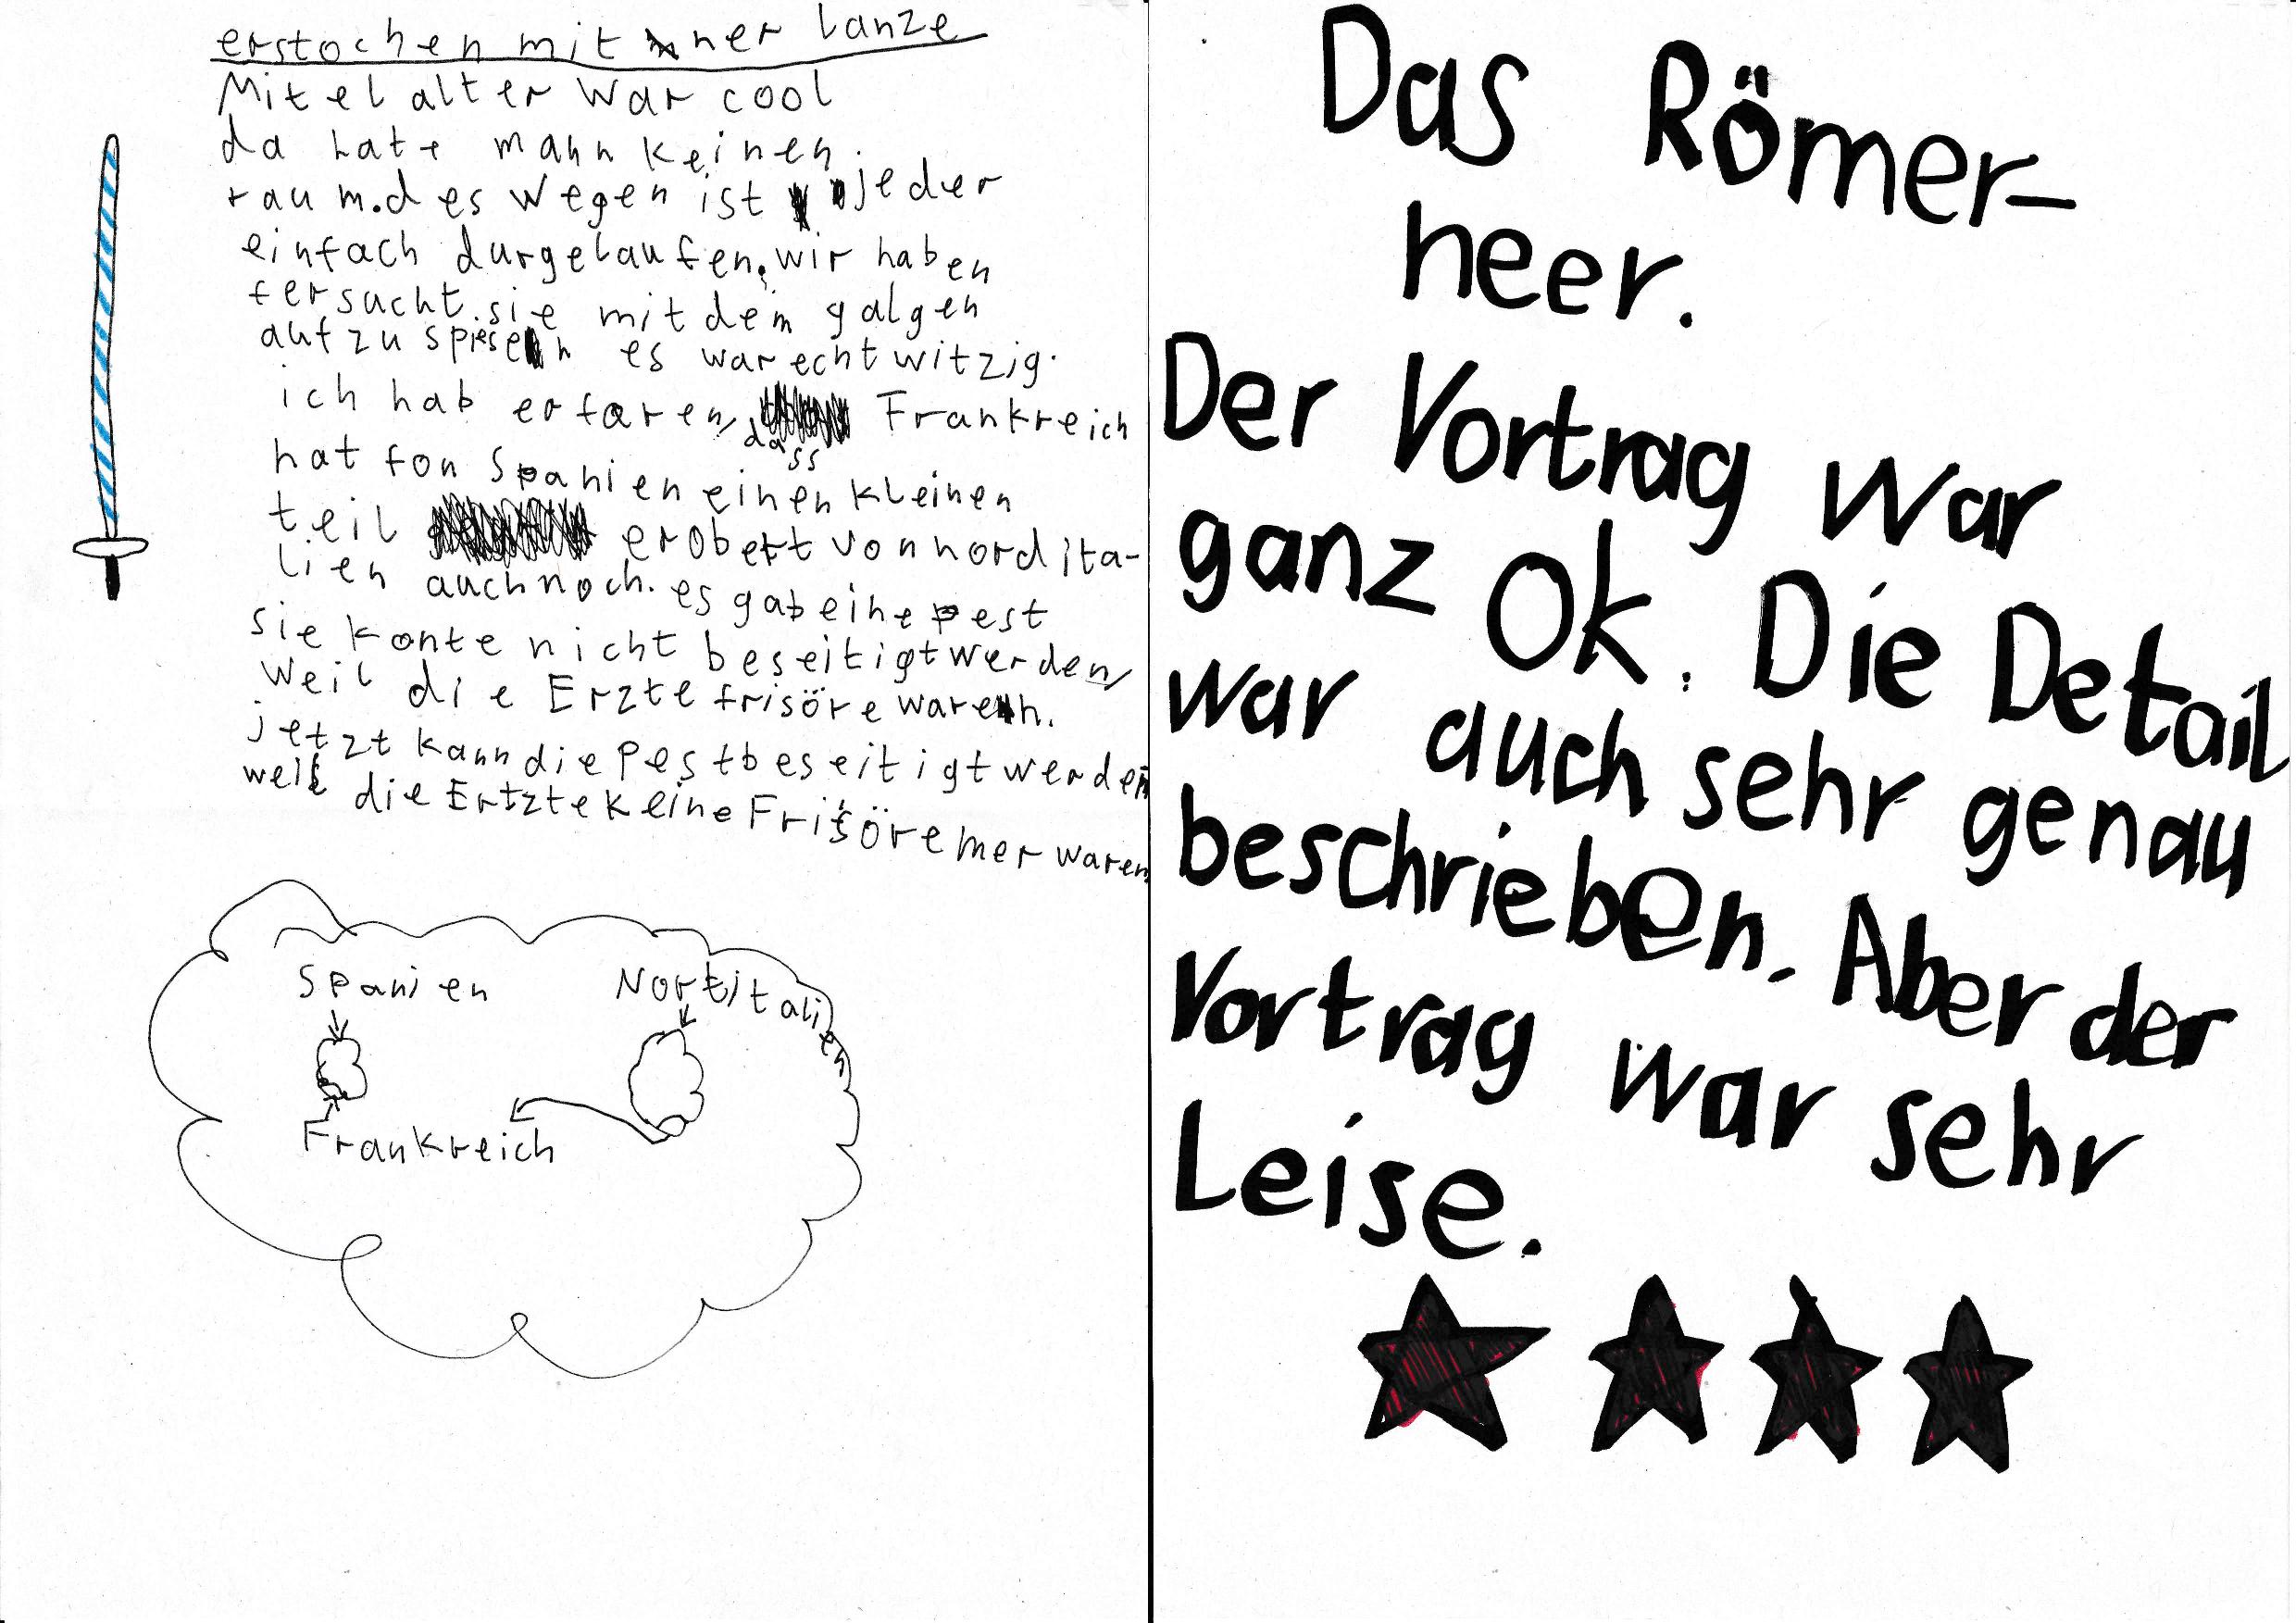 erstochen mit ner Lanze
Mitelalter war cool
da hate mahn keinen
raum.des wegen ist jeder
einfach durgelaufen. wir haben
fersucht. sie mit dem galgen
aufzuspiesen es war echt witzig.
ich hab erfaren, dass Frankreich
hat fon Spanien einen kleinen
teil erobert von nord ita-
lien auch noch. es gab eine pest
sie konte nicht beseitigt werden,
weil die Erzte frisöre waren.
jetzt kann die Pest beseitigt werden
weil die Ertzte keine Frisöre mer waren
Spanien
Nortitalien
Frankreich
Das Römer-
heer.
Der Vortrag war
ganz Ok. Die Detail
war auch sehr genau
beschrieben. Aber der
Vortrag war sehr
Leise.